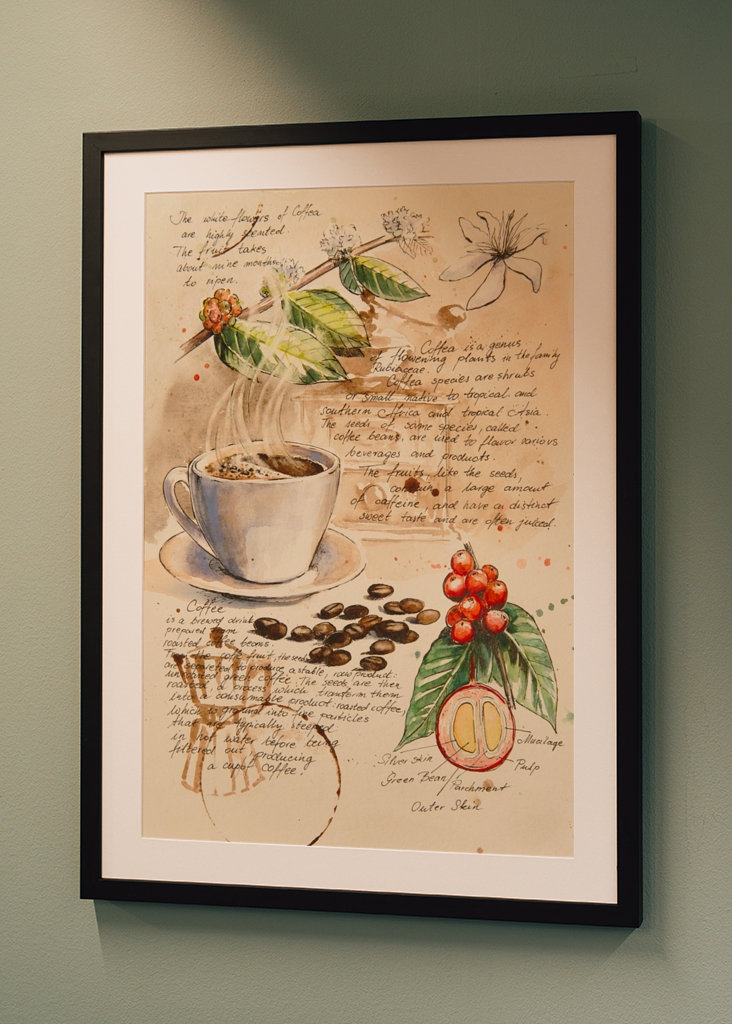 The white flowers of Coffea
are highly scented.
The fruit takes
about nine months
to ripen.
Coffea is a genus
of flowering plants in the family
Rubiaceae.
Coffea species are shrubs
or small native to tropical and
southern Africa and tropical Asia.
The seeds of some species, called
coffee beans, are used to flavor various
beverages and products.
The fruits, like the seeds,
contain a large amount
of caffeine, and have a distinct
sweet taste and are often juiced.
Coffee
is a brewed drink
prepared from
roasted coffee beans.
the coffee fruit, the seeds
are separated to produce a stable, raw product:
unroasted green coffee. The seeds are then
roasted, a process which transform them
into a consumable product: roasted coffee,
which is ground into fine particles
that are typically steeped
in hot water before being
filtered out, producing
a cup of coffee.
Silver skin
Mucilage
Green Bean
Pulp
Parchment
Outer Skin